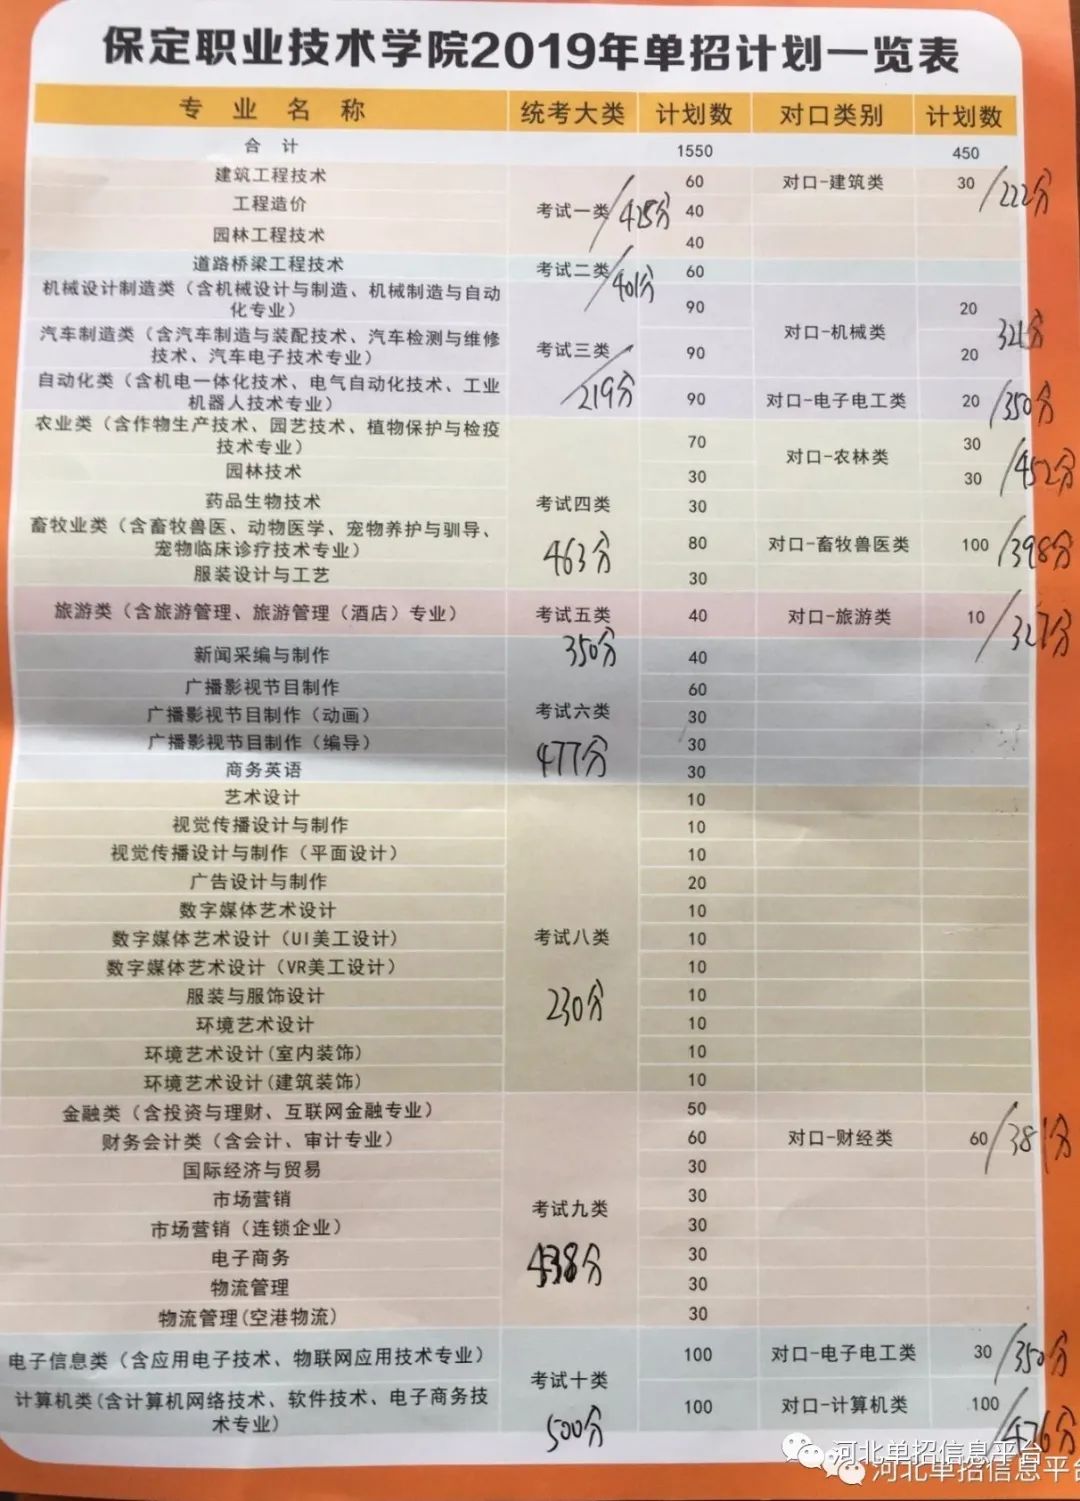 保定职业技术学院2019年单招计划一览表
专业名称 统考大类 计划数 对口类别 计划数
合计 1550 450
建筑工程技术 60 对口-建筑类 30 /222分
工程造价 考试一类 /425分 40
园林工程技术 40
道路桥梁工程技术 考试二类 /401分 60
机械设计制造类（含机械设计与制造、机械制造与自动
化专业） 90 20
汽车制造类（含汽车制造与装配技术、汽车检测与维修
技术、汽车电子技术专业） 考试三类 /219分 90 对口-机械类 20
自动化类（含机电一体化技术、电气自动化技术、工业
机器人技术专业） 90 对口-电子电工类 20 /350分
农业类（含作物生产技术、园艺技术、植物保护与检疫
技术专业） 70 对口-农林类 30
园林技术 30 30 /452分
药品生物技术 考试四类 30
畜牧业类（含畜牧兽医、动物医学、宠物养护与驯导、
宠物临床诊疗技术专业） 463分 80 对口-畜牧兽医类 100 /398分
服装设计与工艺 30
旅游类（含旅游管理、旅游管理（酒店）专业） 考试五类 40 对口-旅游类 10 /327分
350分
新闻采编与制作 40
广播影视节目制作 60
广播影视节目制作（动画） 考试六类 30
广播影视节目制作（编导） 477分 30
商务英语 30
艺术设计 10
视觉传播设计与制作 10
视觉传播设计与制作（平面设计） 10
广告设计与制作 20
数字媒体艺术设计 10
数字媒体艺术设计（UI美工设计） 考试八类 10
数字媒体艺术设计（VR美工设计） 10
服装与服饰设计 230分 10
环境艺术设计 10
环境艺术设计(室内装饰) 10
环境艺术设计(建筑装饰) 10
金融类（含投资与理财、互联网金融专业） 50
财务会计类（含会计、审计专业） 60 对口-财经类 60 /381分
国际经济与贸易 30
市场营销 考试九类 30
市场营销（连锁企业） 30
电子商务 438分 30
物流管理 30
物流管理(空港物流) 30
电子信息类（含应用电子技术、物联网应用技术专业） 100 对口-电子电工类 30 /350分
考试十类
计算机类(含计算机网络技术、软件技术、电子商务技
术专业) 500分 100 对口-计算机类 100 /476分
河北单招信息平台
河北单招信息平台